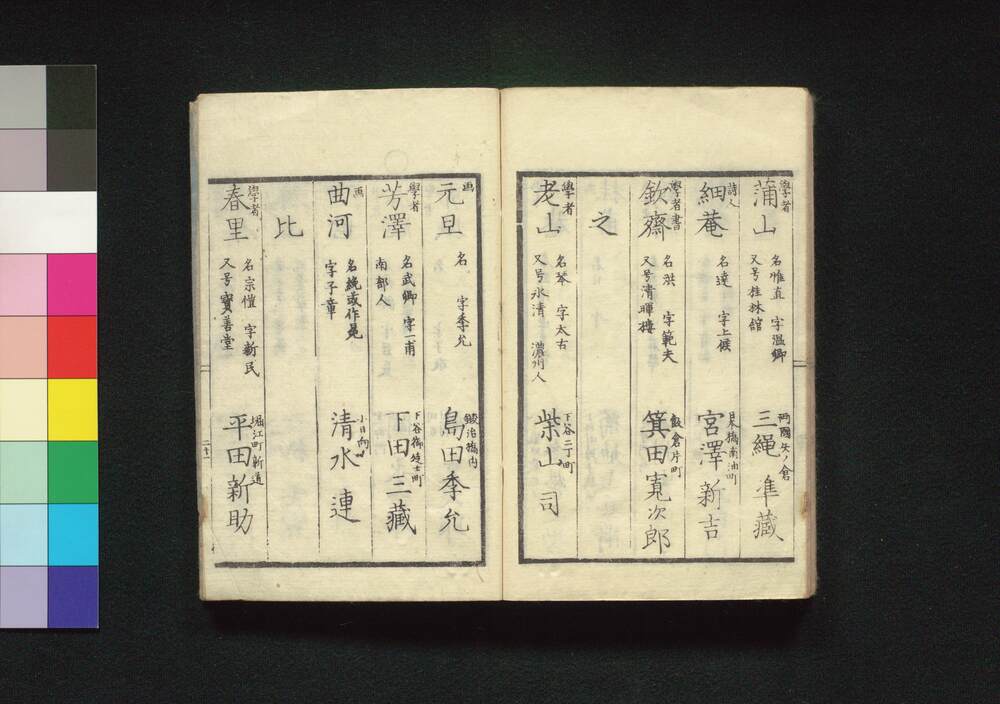 學者
蒲山
名惟直 字温卿
又号桂林舘
両國矢ノ倉
三縄準藏
詩人
細菴
名達 字上候
日本橋南油町
宮澤新吉
學者書
欽齋
名洪 字範夫
又号清暉樓
飯倉片町
箕田寛次郎
之
學者
老山
名琴 字太古
又号氷清 濃州人
下谷二丁町
柴山司
画
元旦
名 字季允
鍛冶橋内
島田季允
學者
芳澤
名武卿 字一甫
南部人
下谷御徒士町
下田三藏
画
曲河
名
字子章
小日向
清水連
比
學者
春里
名宗愷 字新民
又号寳善堂
堀江町新道
平田新助